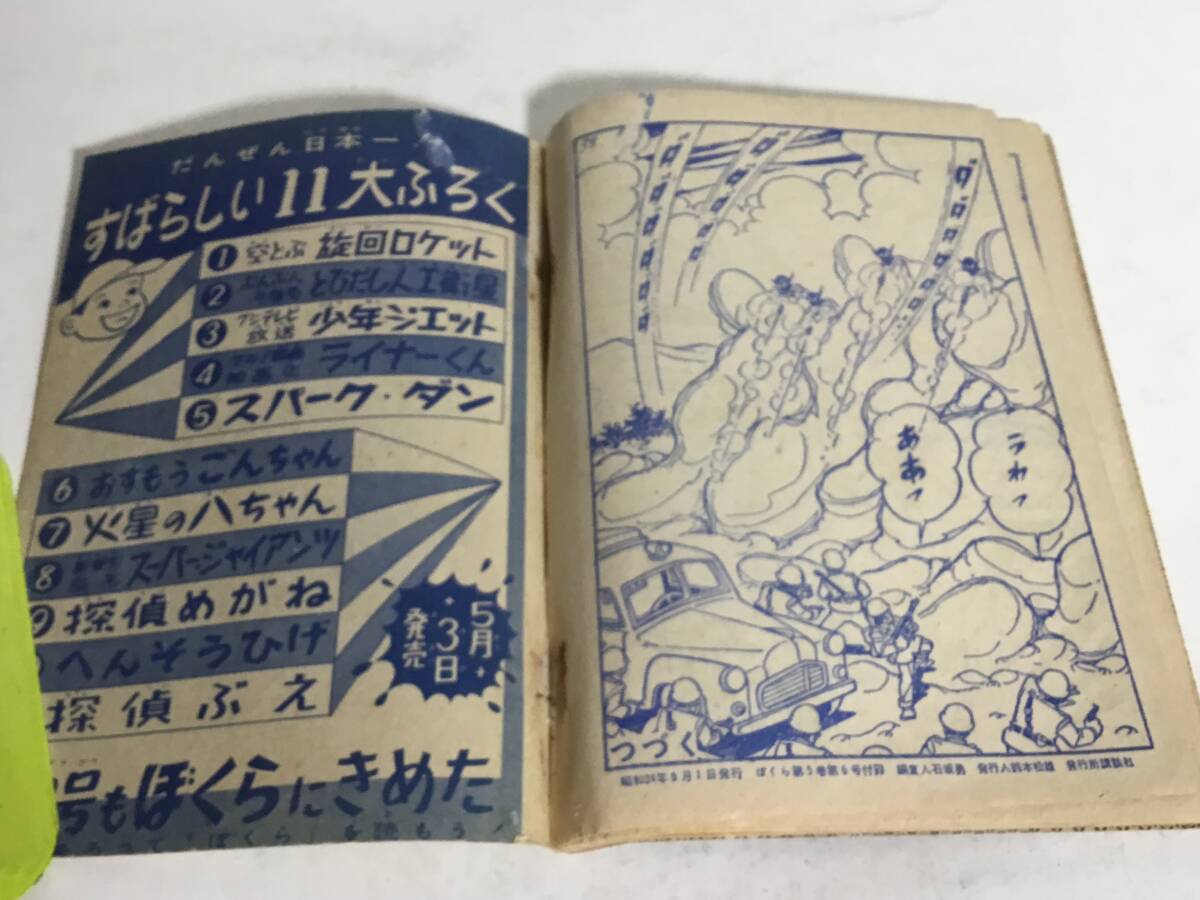 だんぜん日本一
すばらしい11大ふろく
1 空とぶ 旋回ロケット
2 とびだし人工衛星
3 フジテレビ放送 少年ジェット
4 ライナーくん
5 スパーク・ダン
6 おすもうごんちゃん
7 火星の八ちゃん
8 スーパージャイアンツ
探偵めがね
へんそうひげ
探偵ぶえ
5月3日発売
号もぼくらにきめた
ぼくら を読もう
ダダダダ
ダダダ
ダダダダダ
うわっ
ああっ
つづく
月1日発行 ぼくら第5巻第6号付録 発行所講談社